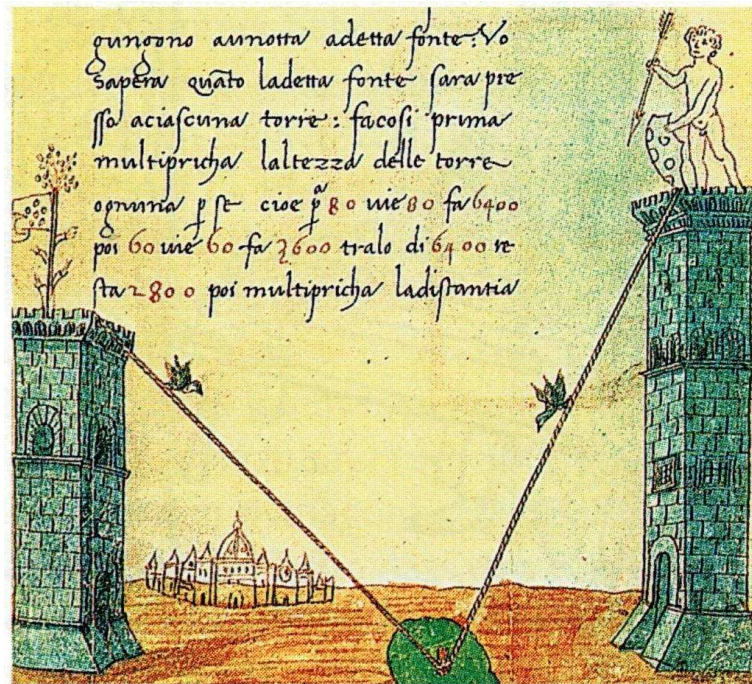 gungono aunotta adetta fonte: Vo
sapera quãto ladetta fonte sara pre
sso aciascuna torre: facosi prima
multipricha laltezza delle torre
ognuna p se cioe pª 80 uie 80 fa 6400
poi 60 uie 60 fa 3600 tralo di 6400 re
sta 2800 poi multipricha ladistantia